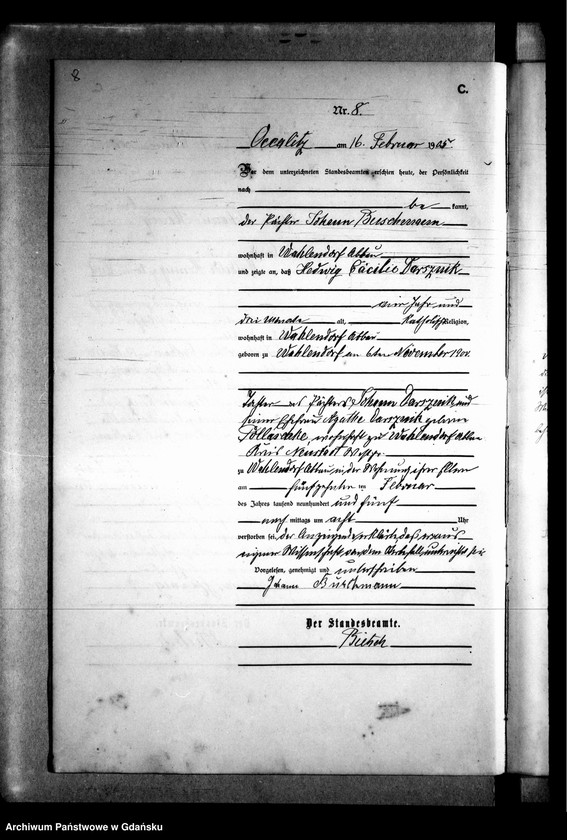 8
C.
Nr. 8.
am 16. Februar 1905.
Vor dem unterzeichneten Standesbeamten erschien heute, der Persönlichkeit
nach
be kannt,
der Pächter Johann
wohnhaft in Wahlendorf Abbau
und zeigte an, daß Hedwig Cäcilie Darsznik
vier Jahr und
drei Monate alt, Religion,
wohnhaft in Wahlendorf Abbau
geboren zu Wahlendorf am 6ten November
Tochter des Pächters Johann Darsznik und
seiner Ehefrau Agathe Darsznik geborene
wohnhaft zu Wahlendorf Abbau
Kreis Neustadt Westpr.
zu Wahlendorf Abbau, in der Wohnung ihrer Eltern
am fünfzehnten Februar
des Jahres tausend neunhundert und fünf
nach mittags um acht Uhr
verstorben sei, der Anzeigende erklärte, daß er aus
eigener Wissenschaft von dem Sterbefall unterrichtet sei
Vorgelesen, genehmigt und unterschrieben
Johann Buschmann
Der Standesbeamte.
Archiwum Państwowe w Gdańsku